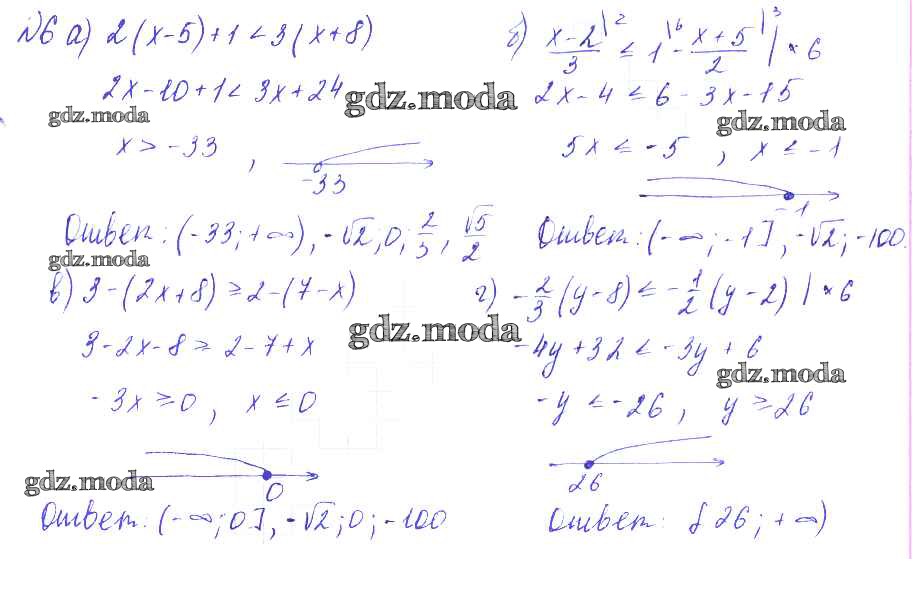 №6 а) 2(x-5)+1<3(x+8)
2x-10+1<3x+24
x>-33 ,
-33
Ответ: (-33;+∞), -√2; 0; 2/3, √5/2
б) x-2/3|² ≤ 1|⁶ - x+5/2|³ | × 6
2x-4 ≤ 6-3x-15
5x ≤ -5 , x ≤ -1
-1
Ответ: (-∞; -1], -√2; -100.
в) 3-(2x+8) ≥ 2-(7-x)
3-2x-8 ≥ 2-7+x
-3x ≥ 0 , x ≤ 0
0
Ответ: (-∞; 0], -√2; 0; -100
г) -2/3(y-8) ≤ -1/2(y-2) | × 6
-4y+32 ≤ -3y+6
-y ≤ -26 , y ≥ 26
26
Ответ: [26; +∞)
gdz.moda
gdz.moda
gdz.moda
gdz.moda
gdz.moda
gdz.moda
gdz.moda